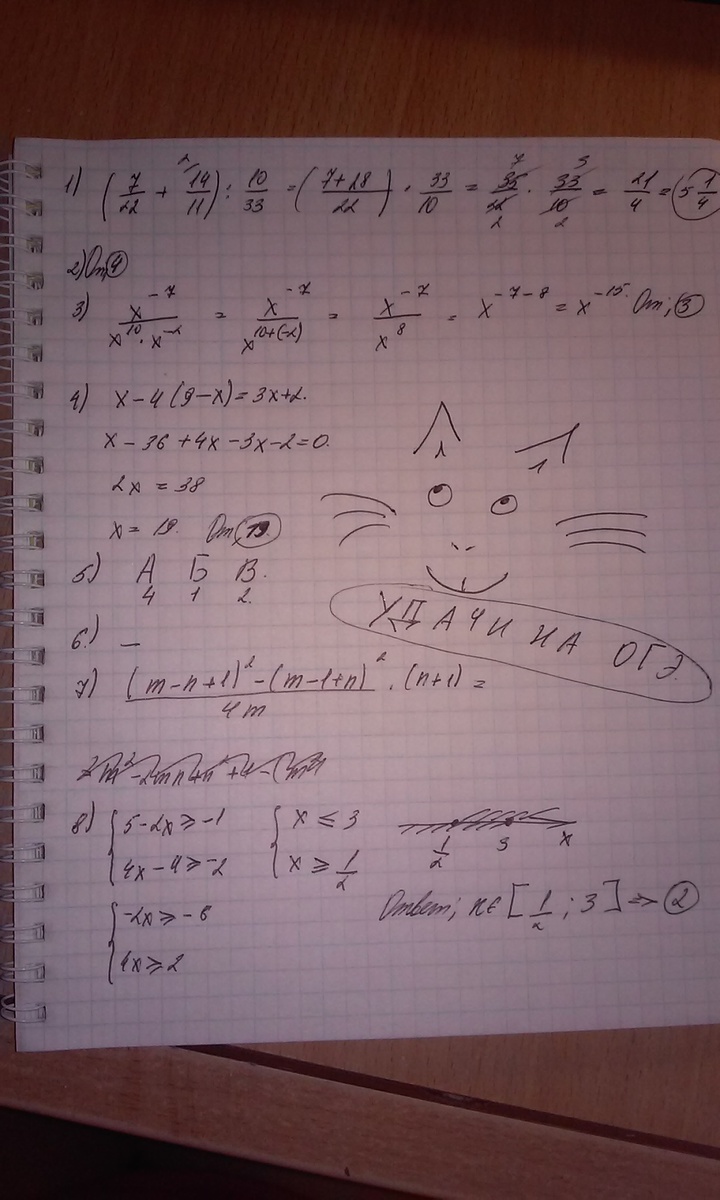 1) (7/22 + 14/11) : 10/33 = ((7+28)/22) · 33/10 = 35/22 · 33/10 = 21/4 = 5 1/4
2) От; 4
3) x^-7 / (x^10 · x^-2) = x^-7 / x^(10+(-2)) = x^-7 / x^8 = x^(-7-8) = x^-15. От; 3
4) x-4(9-x)=3x+2.
x-36+4x-3x-2=0.
2x = 38
x = 19. От; 19.
5) А Б В.
4 1 2.
УДАЧИ НА ОГЭ.
6.) —
7) ((m-n+1)^2 - (m-1+n)^2) / 4m · (n+1) =
8) { 5-2x ≥ -1 { x ≤ 3
4x-4 ≥ -2 x ≥ 1/2
1/2 3 x
{ -2x ≥ -6
4x ≥ 2
Ответ; x∈ [1/2 ; 3] => 2